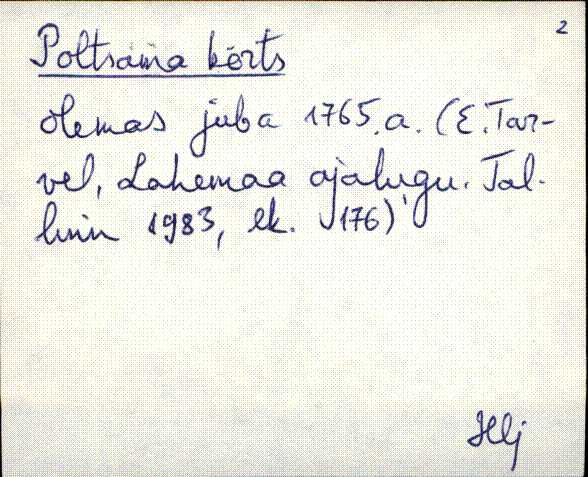 2
Poltsama kõrts
olemas juba 1765.a. (E. Tar-
vel, Lahemaa ajalugu. Tal-
linn 1983, lk. 176)
Hlj